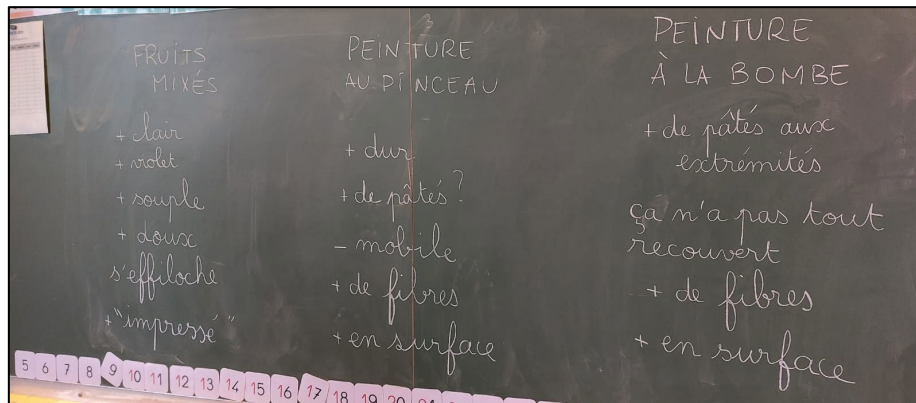 FRUITS
MIXÉS
+ clair
+ violet
+ souple
+ doux
s'effiloche
+ "impressé"
PEINTURE
AU PINCEAU
+ dur
+ de pâtés ?
- mobile
+ de fibres
+ en surface
PEINTURE
À LA BOMBE
+ de pâtés aux
extrémités
ça n'a pas tout
recouvert
+ de fibres
+ en surface
5 6 7 8 9 10 11 12 13 14 15 16 17 18 19 20